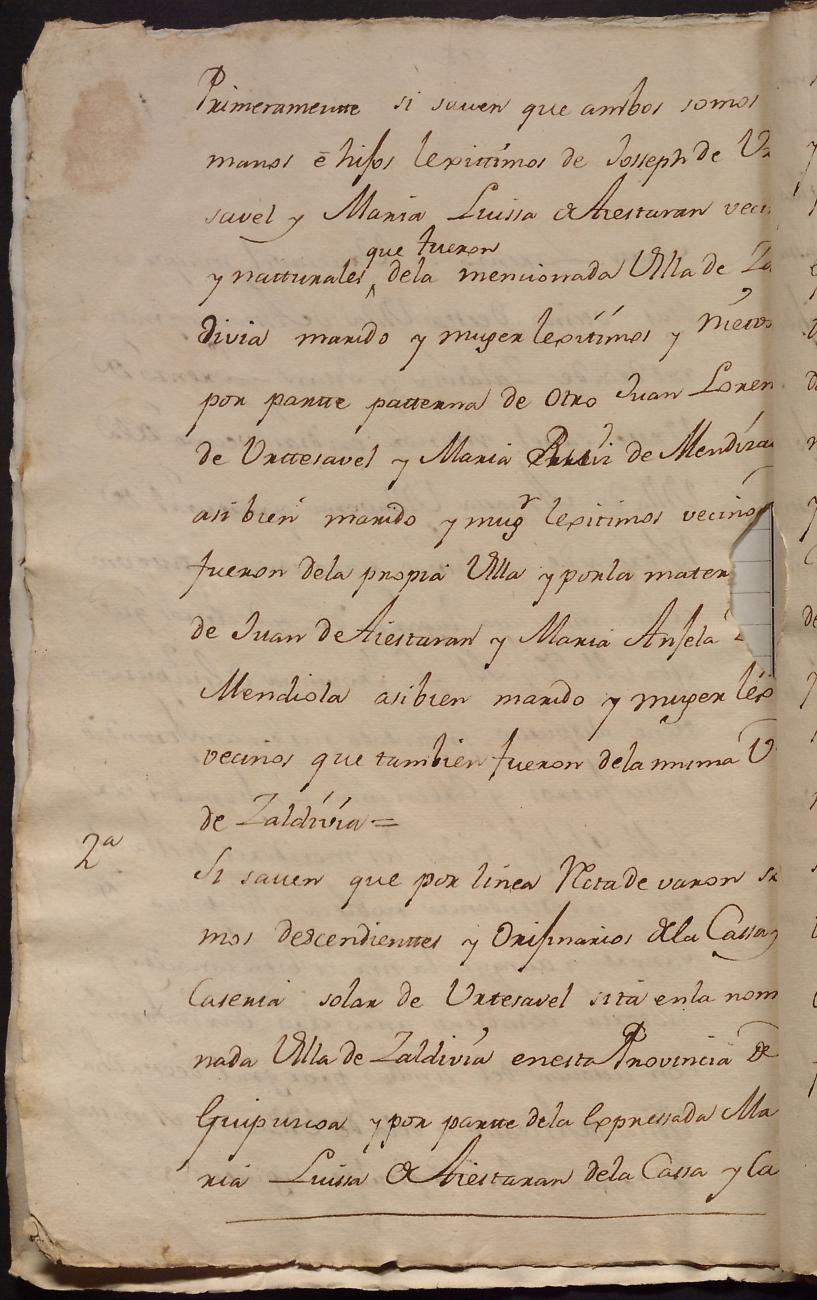 Primeramentte si saven que ambos somos
manos é hijos lexittimos de Josseph de Vr
savel y Maria Luissa de Aiestaran veci
que fueron
y natturales dela mencionada Villa de Za
divia marido y muger lexitimos y Nietos
por partte patterna de otro Juan Loren
de Vrttesavel y Maria Ruiz de Mendiza
asi bien marido y mugr lexitimos vecino
fueron dela propia Villa y por la mater
de Juan de Aiestaran y Maria Anjela
Mendiola asibien marido y muger lexi
vecinos que tambien fueron dela misma V
de Zaldivia =
2a
Si saven que por linea Recta de varon so
mos descendienttes y Orijinarios de la Cassa y
Caseria solar de Vrtesavel sita en la nom
nada Villa de Zaldivia en esta Provincia de
Guipuzcoa y por partte dela Expressada Ma
ria Luissa de Aiestaran dela Cassa y Ca